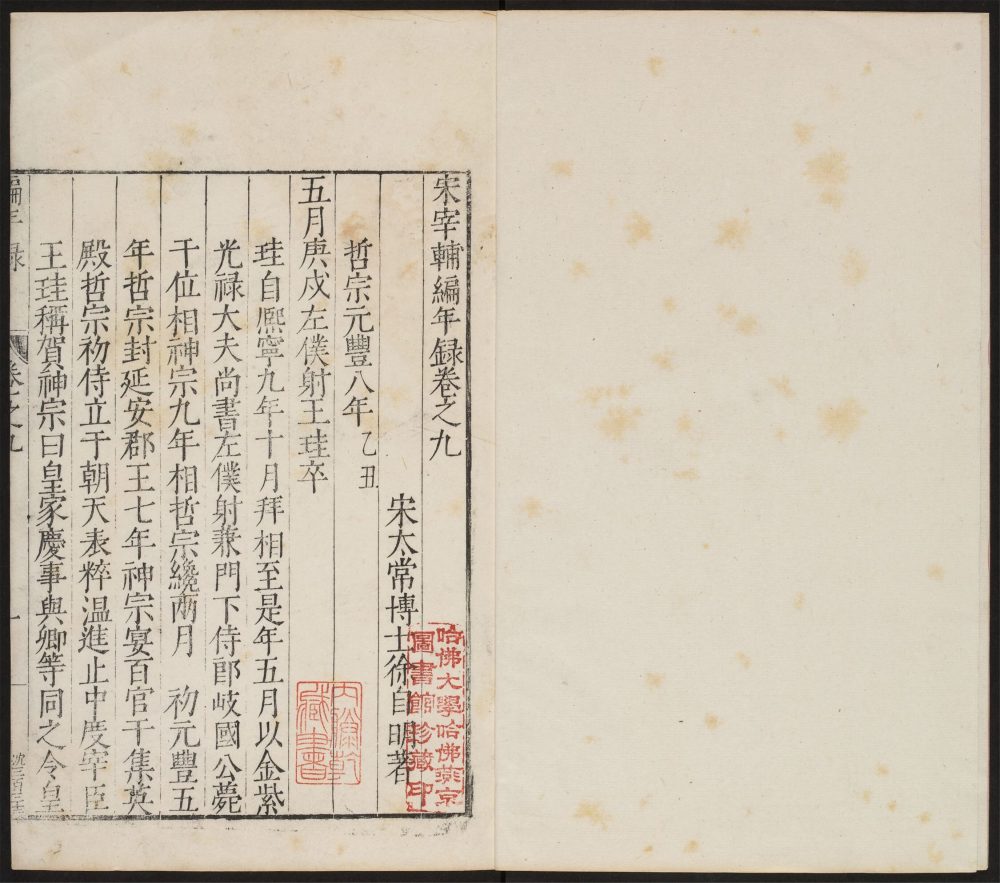 宋宰輔編年錄卷之九
宋太常博士徐自明著
哲宗元豐八年乙丑
五月庚戌左僕射王珪卒
珪自熙寧九年十月拜相至是年五月以金紫
光祿大夫尚書左僕射兼門下侍郎岐國公薨
于位相神宗九年相哲宗纔兩月　初元豐五
年哲宗封延安郡王七年神宗宴百官于集英
殿哲宗初侍立于朝天表粹温進止中度宰臣
王珪稱賀神宗曰皇家慶事與卿等同之令皇
卷之九
一
哈佛大學哈佛燕京
圖書館珍藏印
藏書